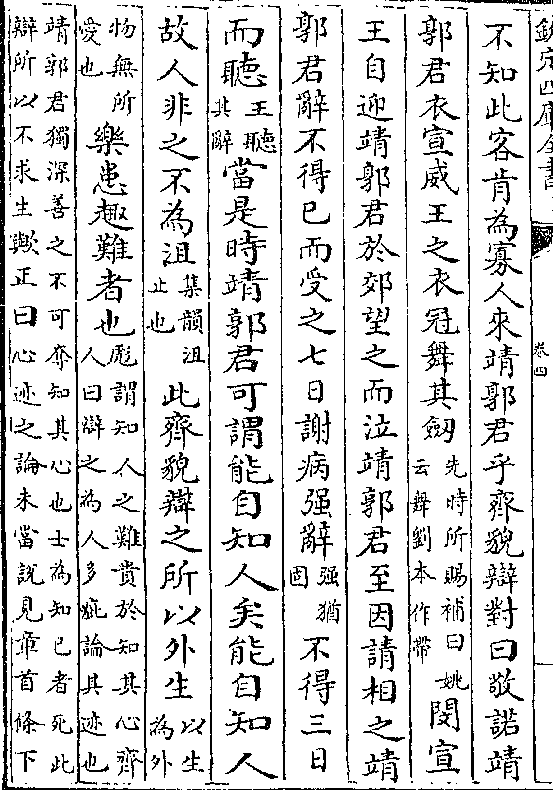 欽定四庫全書
卷四
不知此客肯為寡人來靖郭君乎齊貌辯對曰敬諾靖
郭君衣宣威王之衣冠舞其劒先時所賜補曰姚云舞劉本作帶閔宣
王自迎靖郭君於郊望之而泣靖郭君至因請相之靖
郭君辭不得已而受之七日謝病强辭强猶固不得三日
而聽王聽其辭當是時靖郭君可謂能自知人矣能自知人
故人非之不為沮集韻沮止也此齊貌辯之所以外生以生為外
物無所愛也樂患趣難者也彪謂知人之難貴於知其心齊人曰辯之為人多疵論其迹也
靖郭君獨深善之不可奪知其心也士為知已者死此
辯所以不求生歟正曰心迹之論未當說見章首條下